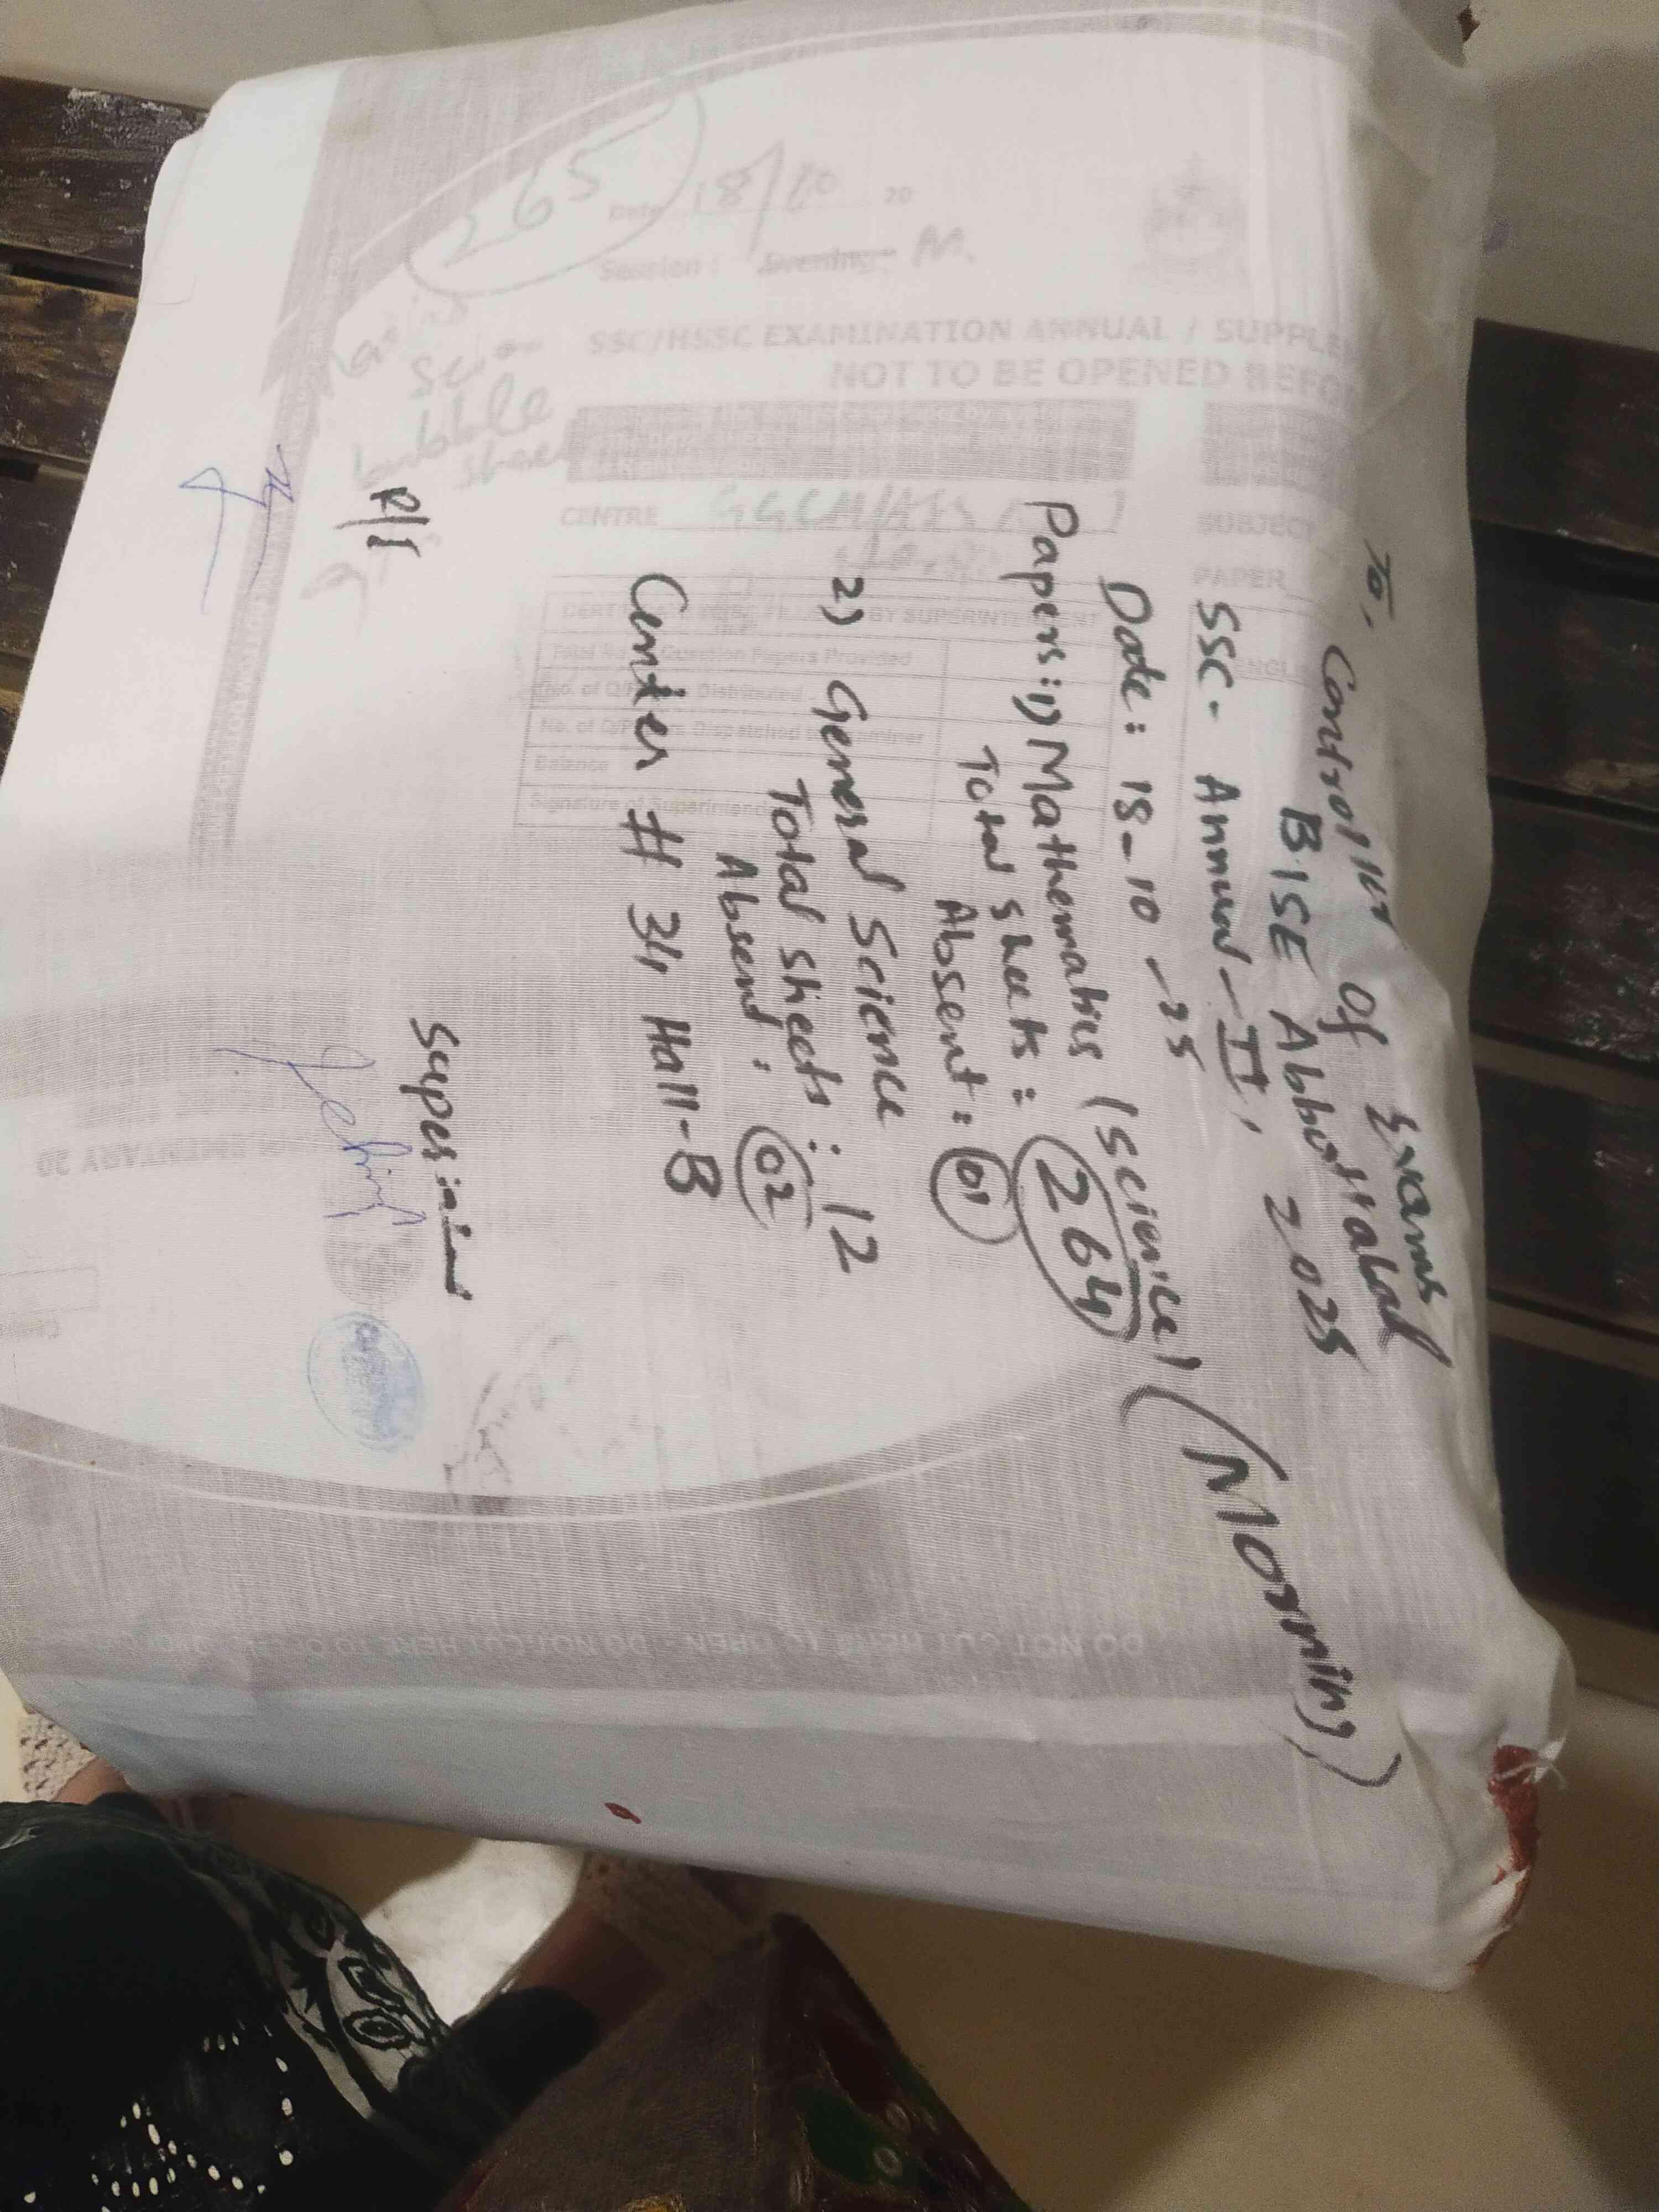 To,
Controller of Exams
BISE Abbottabad
SSC- Annual-II, 2025
Date: 18-10-25
(Morning)
Papers: 1) Mathematics (Science)
Total sheets: 264
Absent: 01
2) General Science
Total sheets: 12
Absent: 02
Center # 34 Hall-B
R/I
265
Date 18/10 20
Session: Evening M.
SSC/HSSC EXAMINATION ANNUAL / SUPPLE
NOT TO BE OPENED BEFO
bubble
CENTRE
SUBJECT
PAPER
CERTIFICATE BY SUPERINTENDENT
Total No. Question Papers Provided
No. of Distributed
No. of Dispatched
Balance
Signature of Superintendent
DO NOT CUT HERE TO OPEN - DO NOT CUT HERE TO OPEN